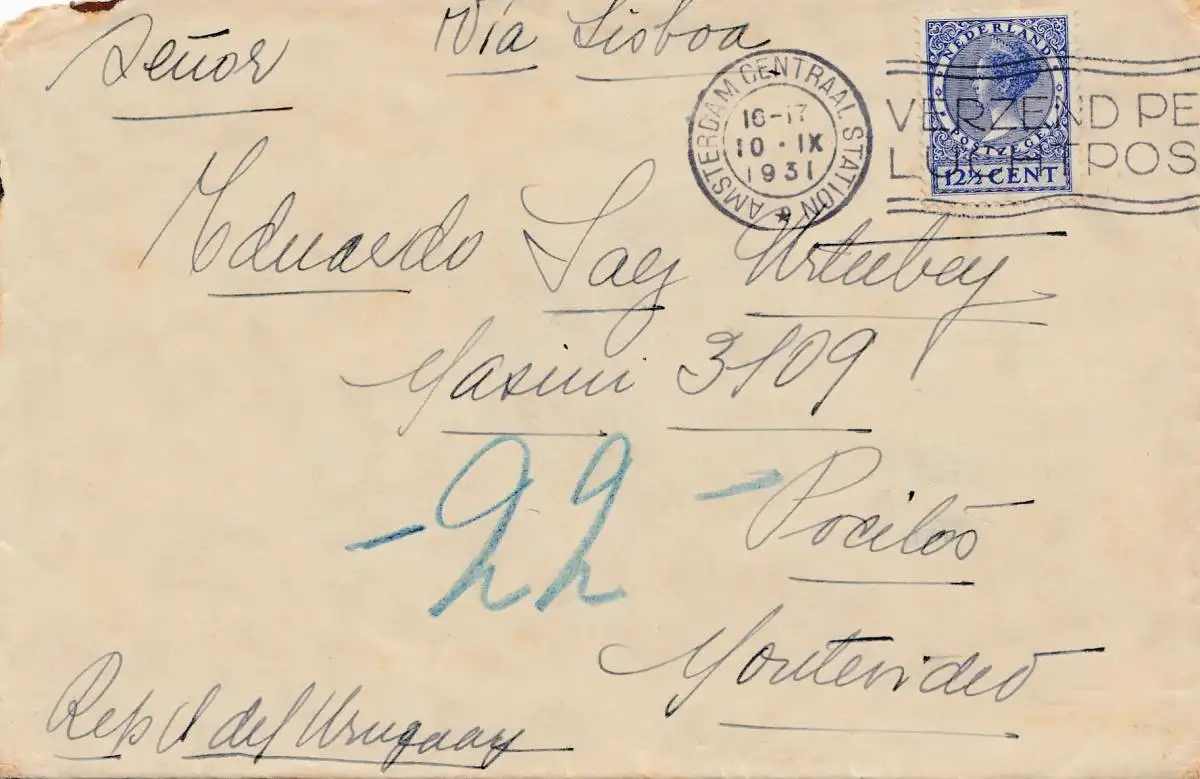 Vía Lisboa
Señor
NEDERLAND
POSTZEGEL
12½ CENT
AMSTERDAM CENTRAAL STATION
16-17
10 · IX
1931
VERZEND PE
LUCHTPOS
Eduardo Urtubey
Masini 3109
22
Pocitos
Montevideo
Rep del Uruguay